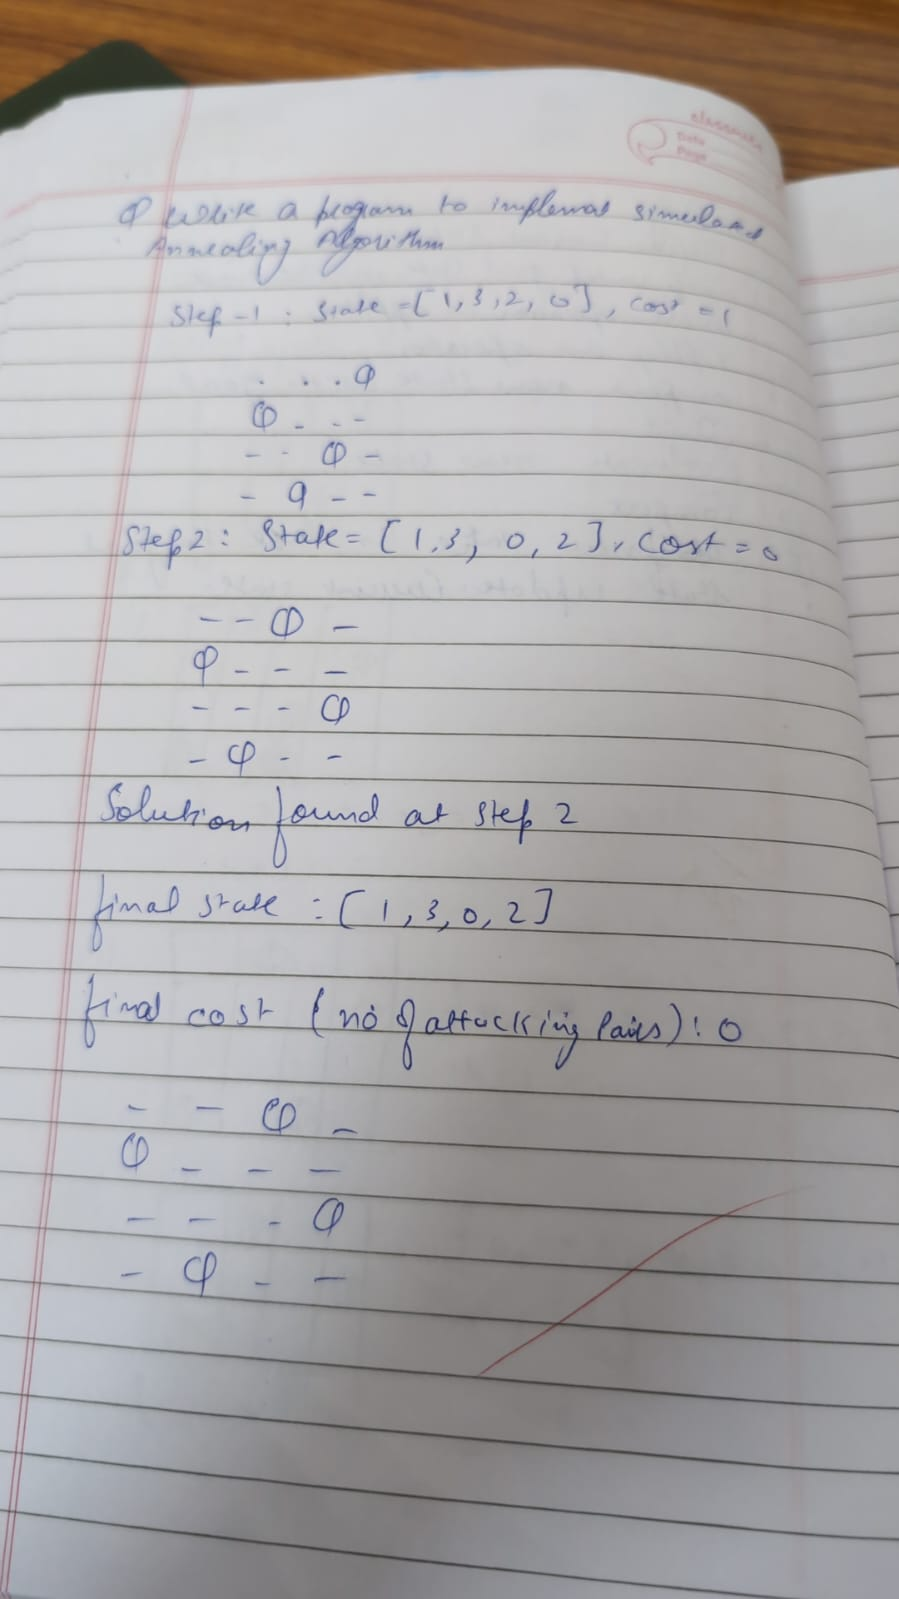 classmate
Date
Page
Q Write a program to implemat simulated
Annealing Algorithm
Step-1 : State = [1, 3, 2, 0], cost = 1
. . . Q
Q - - -
- - Q -
- Q - -
Step 2 : State = [1, 3, 0, 2], cost = 0
- - Q -
Q - - -
- - - Q
- Q - -
Solution found at step 2
final state : [1, 3, 0, 2]
final cost (no of attacking Pairs) : 0
- - Q -
Q - - -
- - - Q
- Q - -